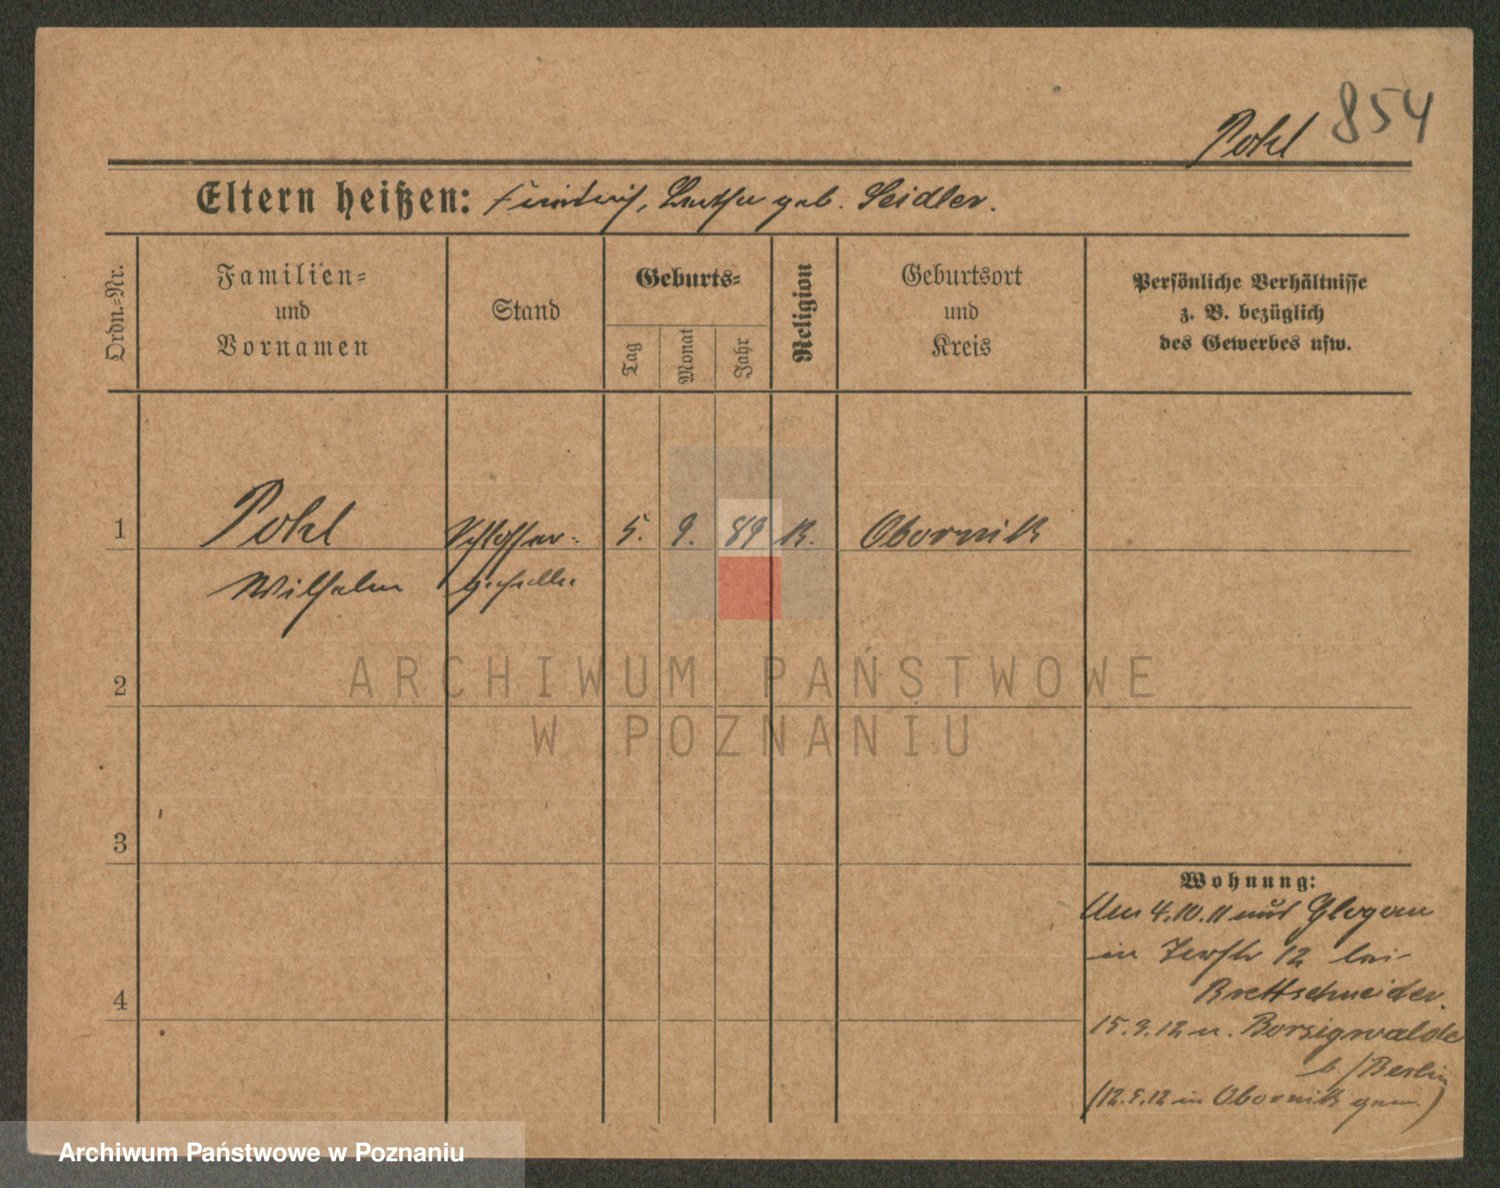 Pohl 854
Eltern heißen: geb. Seidler.
Ordn.-Nr.
Familien-
und
Vornamen
Stand
Geburts-
Tag
Monat
Jahr
Religion
Geburtsort
und
Kreis
Persönliche Verhältnisse
z. B. bezüglich
des Gewerbes usw.
1 Pohl Schlosser- 5. 9. 89 K. Obornik
Wilhelm geselle
ARCHIWUM PAŃSTWOWE
2
W POZNANIU
3
Wohnung:
Am 4.10.11 aus Glogau
in 12 bei
4 Brettschneider.
15.9.12 n. Borsigwalde
b/Berlin
(12.9.12 in Obornik gem.)
Archiwum Państwowe w Poznaniu